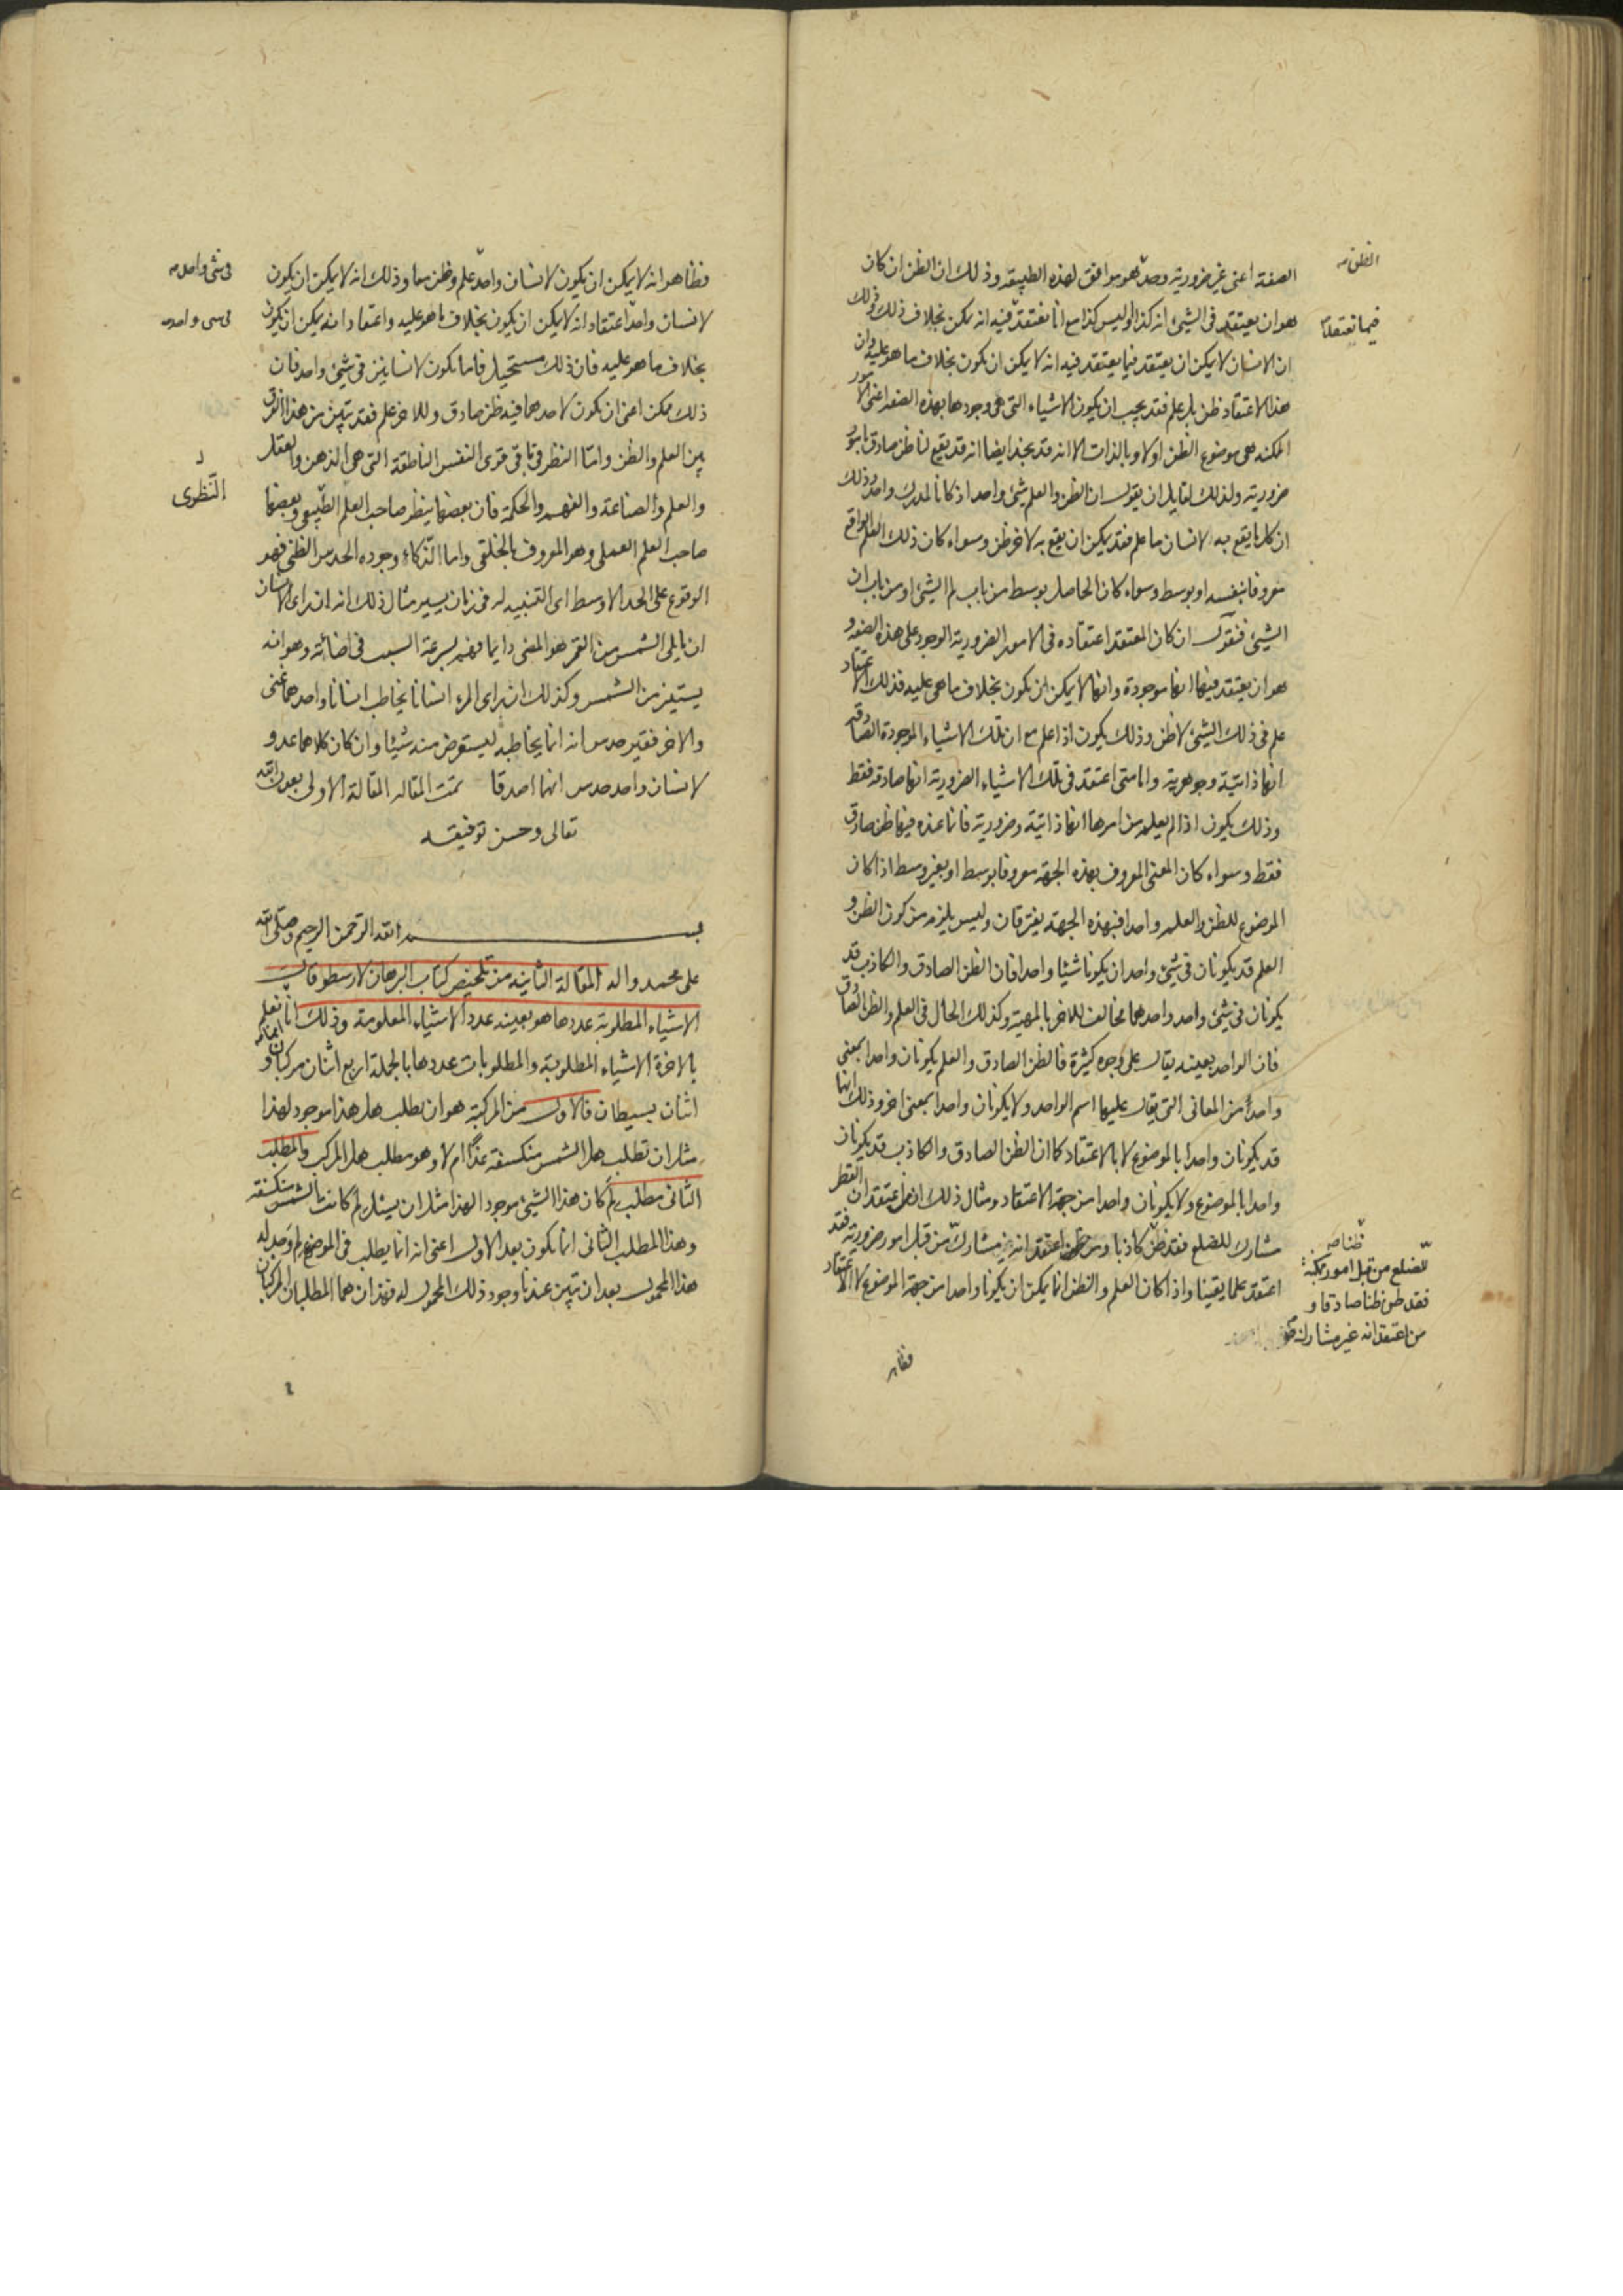 الصفة اعنى غير ضرورية وحدّه هو موافق لهذه الطبيعة وذلك ان الظن ان كان
هو ان يعتقد فى الشيئ انه كذا او ليس كذا مع انا نعتقد فيه انه يمكن بخلاف ذلك وذلك
ان الانسان لا يمكن ان يعتقد فيما يعتقد فيه انه لا يمكن ان يكون بخلاف ما هو عليه وان
هذا الاعتقاد ظن بل علم فقد يجب ان يكون الاشياء التى هى وجودها بهذه الصفة اعنى الامور
الممكنة هى موضوع الظن اولا وبالذات الا انه قد نجد ايضا انه قد يقع لنا ظن صادق بامور
ضرورية ولذلك لقايل ان يقول ان الظن والعلم شيئ واحد اذ كانا لمدرك واحد وذلك
ان كل ما يقع به لانسان ما علم فقد يمكن ان يقع به لاخر ظن وسواء كان ذلك العلم الواقع
معروفا بنفسه او بوسط وسواء كان الحاصل بوسط من باب لم الشيئ او من باب ان
الشيئ فنقول ان كان المعتقد اعتقاده فى الامور الضرورية الوجود على هذه الصفة و
هو ان يعتقد فيها انها موجودة وانها لا يمكن ان يكون بخلاف ما هى عليه فذلك الاعتقاد
علم فى ذلك الشيئ لا ظن وذلك يكون اذا علم مع ان تلك الاشياء الموجودة الصادقة
انها ذاتية وجوهرية واما متى اعتقد فى تلك الاشياء الضرورية انها صادقة فقط
وذلك يكون اذا لم يعلم من امرها انها ذاتية وضرورية فانما عنده فيها ظن صادق
فقط وسواء كان المعنى المعروف بهذه الجهة معروفا بوسط او بغير وسط اذا كان
الموضوع للظن والعلم واحدا فبهذه الجهة يفترقان وليس يلزم من كون الظن و
العلم قد يكونان فى شيئ واحد ان يكونا شيئا واحدا فان الظن الصادق والكاذب قد
يكونان فى شيئ واحد واحدهما مخالف للاخر بالمهية وكذلك الحال فى العلم والظن الصادق
فان الواحد بعينه يقال على وجوه كثيرة فالظن الصادق والعلم يكونان واحدا بمعنى
واحد من المعانى التى يقال عليها اسم الواحد ولا يكونان واحدا بمعنى اخر وذلك انها
قد يكونان واحدا بالموضوع لا بالاعتقاد كما ان الظن الصادق والكاذب قد يكونان
واحدا بالموضوع ولا يكونان واحدا من جهة الاعتقاد ومثال ذلك ان من اعتقد ان القطر
مشارك للضلع فقد ظن كاذبا ومن اعتقد انه غير مشارك من قبل امور ضرورية فقد
اعتقد علما يقينا واذا كان العلم والظن انما يمكن ان يكونا واحدا من جهة الموضوع لا الاعتقاد
الظن صه
فيما نعتقد
ظنا صه
للضلع من قبل امور ممكنة
فقد ظن ظنا صادقا و
من اعتقد انه غير مشارك
فظاهر
فظاهر انه لا يمكن ان يكون لانسان واحد علم وظن معا وذلك انه لا يمكن ان يكون
لانسان واحد اعتقاد انه لا يمكن ان يكون بخلاف ما هو عليه واعتقاد انه يمكن ان يكون
بخلاف ما هو عليه فان ذلك مستحيل فاما يكون لانسانين فى شيئ واحد فان
ذلك ممكن اعنى ان يكون لاحدهما فيه ظن صادق وللاخر علم فقد تبين من هذا الفرق
بين العلم والظن وامّا النظر فى باقى قوى النفس الناطقة التى هى الذهن والعقل
والعلم والصناعة والفهم والحكمة فان بعضها ينظر صاحب العلم الطبيعى وبعضها
صاحب العلم العملى وهو المعروف بالخلقى واما الذكاء وجوده الحدس الظنى فهو
الوقوع على الحد الاوسط اى التنبيه له فى زمان يسير مثال ذلك انه ان راى الانسان
ان ما يلى الشمس من القمر هو المضئ دايما فهم بسرعة السبب فى اضائه وهو انه
يستنير من الشمس وكذلك ان راى المرء انسانا يخاطب انسانا واحدهما غنى
والاخر فقير حدس انه انما يخاطبه ليستقرض منه شيئا وان كان كلاهما عدو
لانسان واحد حدس انهما اصدقا تمت المقاله المقالة الاولى بعون الله
تعالى وحسن توفيقه
فى شئ واحد صه
فى شى واحد صه
النّظرى
بسم الله الرحمن الرحيم وصلى الله
على محمد واله المقالة الثانية من تلخيص كتاب البرهان لارسطو قال
الاشياء المطلوبة عددها هو بعينه عدد الاشياء المعلومة وذلك انا نعلم
بالاخرة الاشياء المطلوبة والمطلوبات عددها بالجملة اربع اثنان مركبان و
اثنان بسيطان فالاول من المركبة هو ان يطلب هل هذا موجود لهذا
مثل ان تطلب هل الشمس منكسفة غدا ام لا وهو مطلب هل المركب والمطلب
الثانى مطلب لم كان هذا الشيئ موجود الهذا مثل ان يسئل لم كانت الشمس منكسفة
وهذا المطلب الثانى انما يكون بعد الاول اعنى انه انما يطلب فى الموضع لم وجد له
هذا المحمول بعد ان تبين عندنا وجود ذلك المحمول له فهذان هما المطلبان المركبان